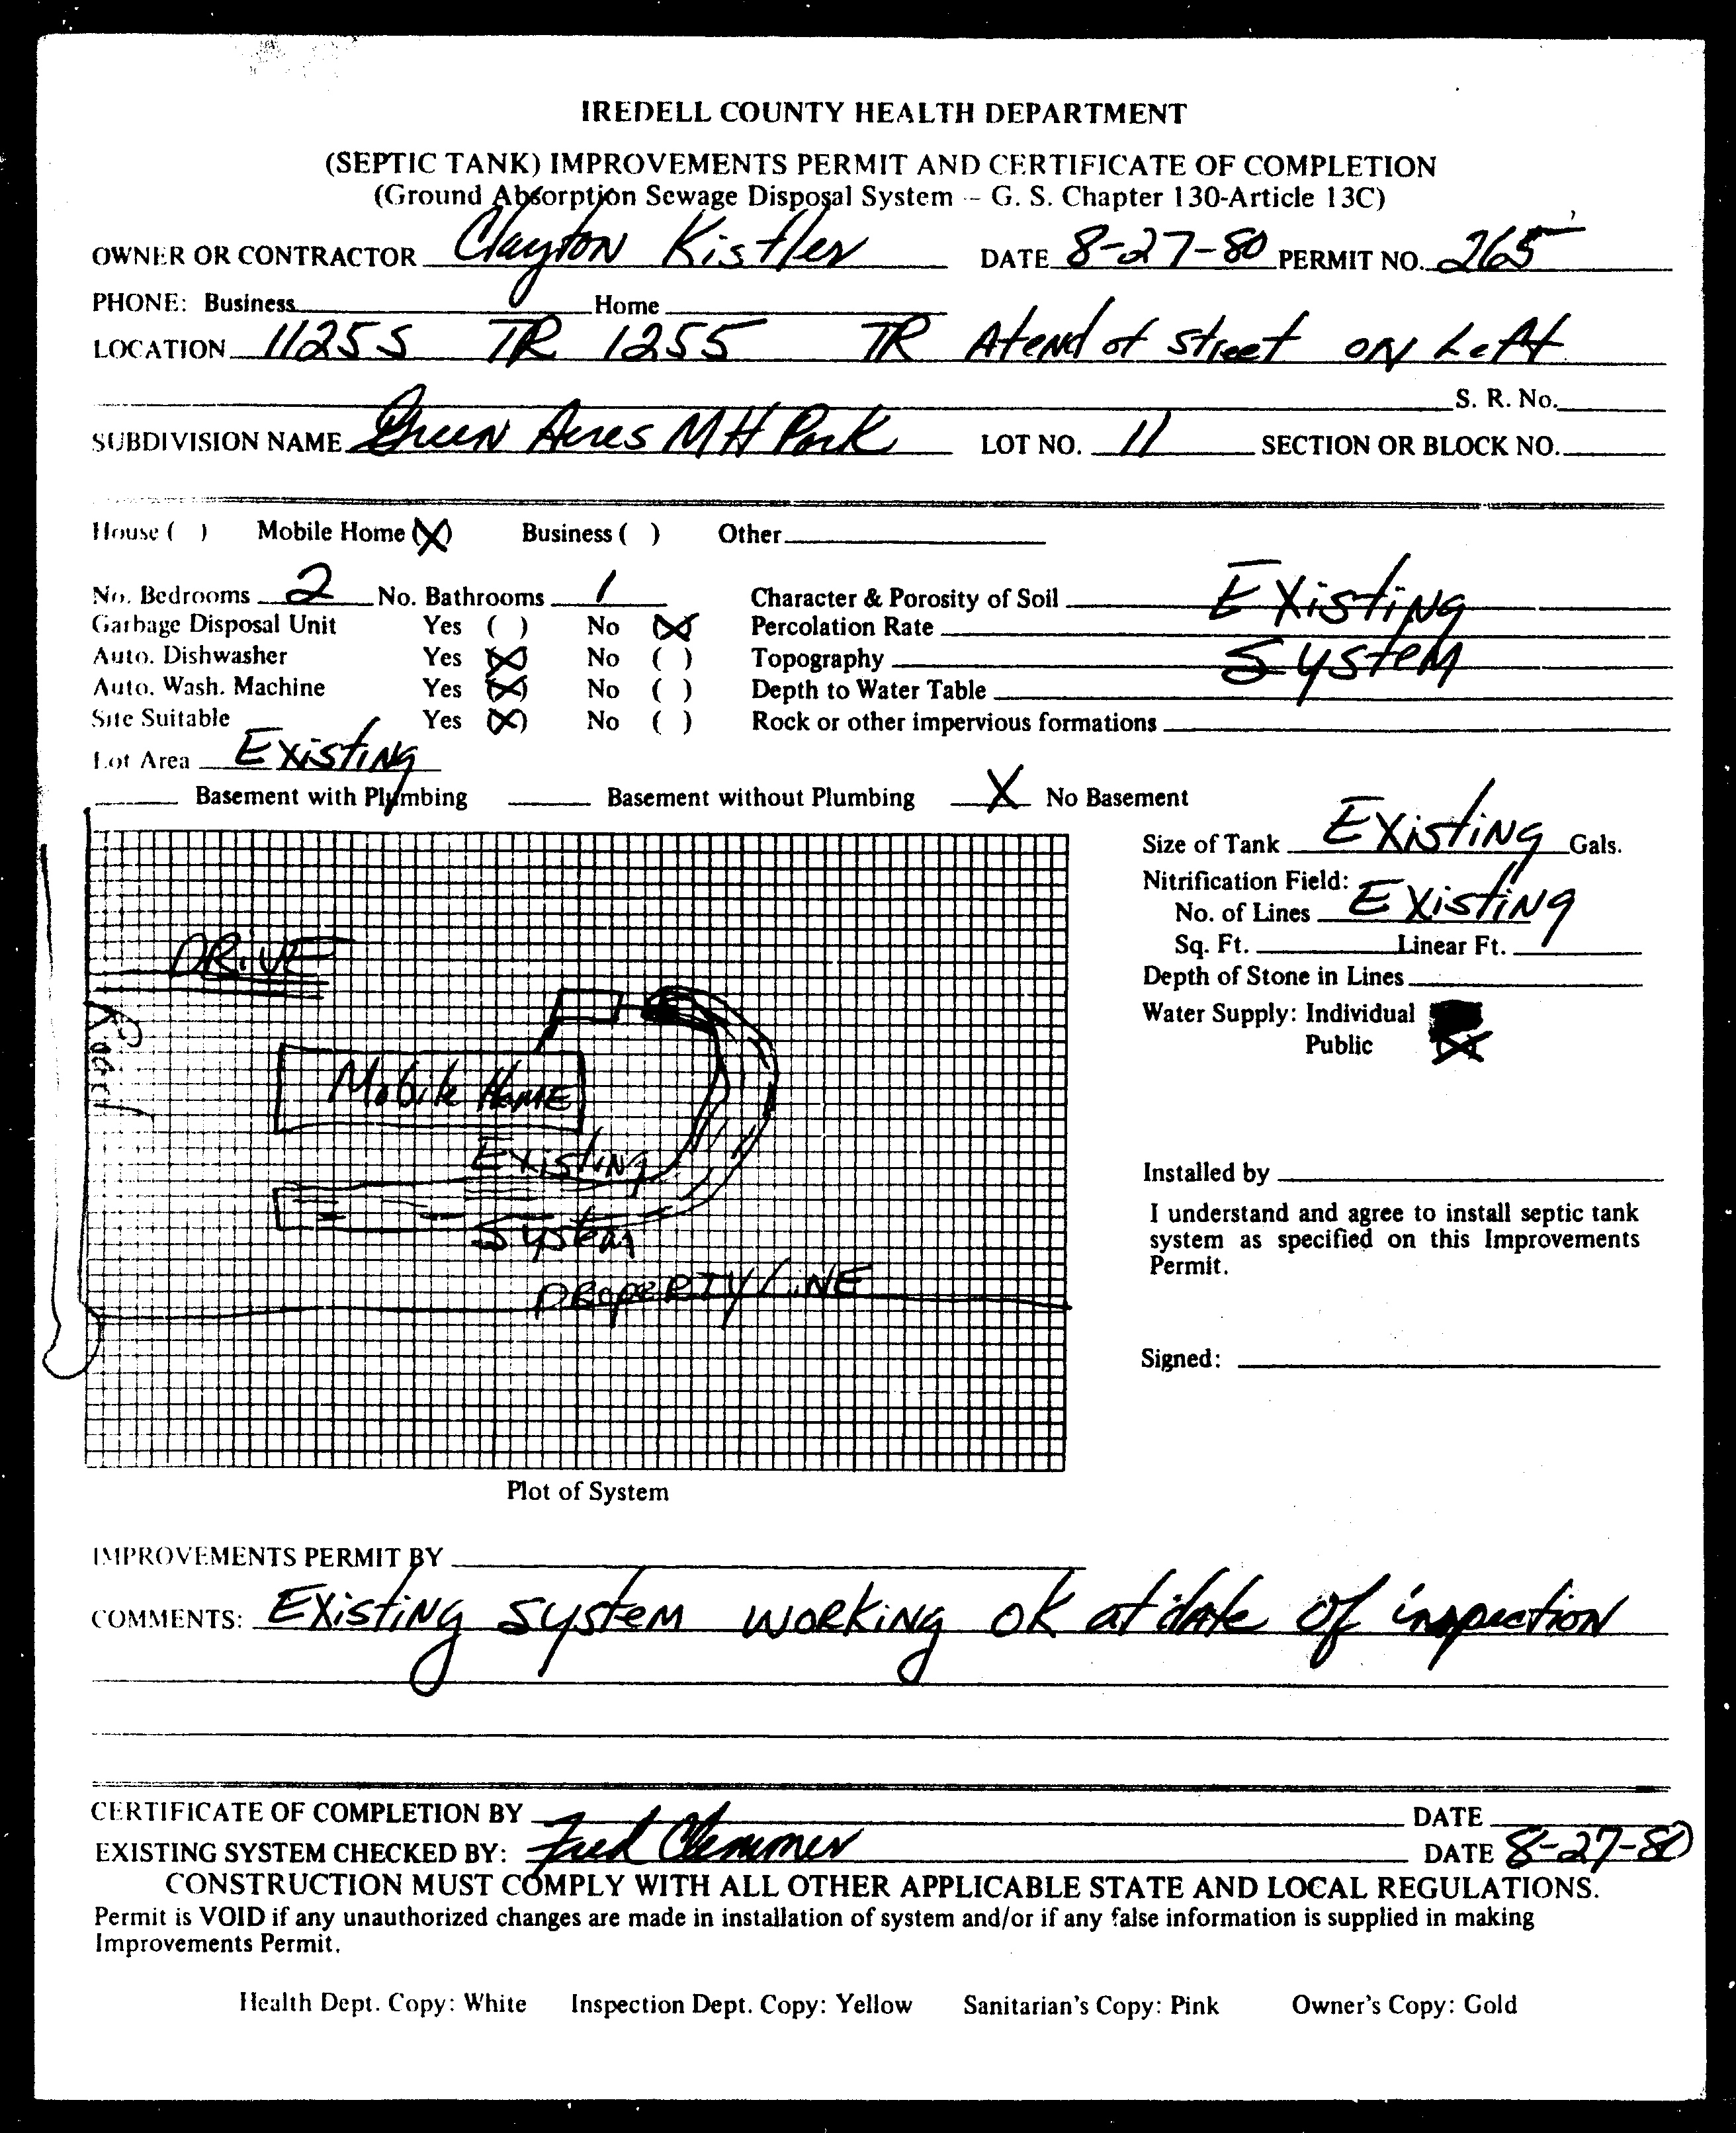 IREDELL COUNTY HEALTH DEPARTMENT
(SEPTIC TANK) IMPROVEMENTS PERMIT AND CERTIFICATE OF COMPLETION
(Ground Absorption Sewage Disposal System -- G. S. Chapter 130-Article 13C)
OWNER OR CONTRACTOR Clayton Kistler DATE 8-27-80 PERMIT NO. 265
PHONE: Business Home
LOCATION 1125 S TR 1255 TR At end of street on Left
S. R. No.
SUBDIVISION NAME Green Acres MH Park LOT NO. 11 SECTION OR BLOCK NO.
House ( ) Mobile Home (X) Business ( ) Other
No. Bedrooms 2 No. Bathrooms 1 Character & Porosity of Soil Existing
Garbage Disposal Unit Yes ( ) No (X) Percolation Rate
Auto. Dishwasher Yes (X) No ( ) Topography System
Auto. Wash. Machine Yes (X) No ( ) Depth to Water Table
Site Suitable Yes (X) No ( ) Rock or other impervious formations
Lot Area Existing
Basement with Plumbing Basement without Plumbing X No Basement
Size of Tank Existing Gals.
Nitrification Field:
No. of Lines Existing
Sq. Ft. Linear Ft.
Depth of Stone in Lines
Water Supply: Individual
Public (X)
DRIVE
Road
Mobile Home
Existing
System
PROPERTY LINE
Installed by
I understand and agree to install septic tank
system as specified on this Improvements
Permit.
Signed:
Plot of System
IMPROVEMENTS PERMIT BY
COMMENTS: Existing system working OK at date of inspection
CERTIFICATE OF COMPLETION BY DATE
EXISTING SYSTEM CHECKED BY: Fred Clemmer DATE 8-27-80
CONSTRUCTION MUST COMPLY WITH ALL OTHER APPLICABLE STATE AND LOCAL REGULATIONS.
Permit is VOID if any unauthorized changes are made in installation of system and/or if any false information is supplied in making
Improvements Permit.
Health Dept. Copy: White Inspection Dept. Copy: Yellow Sanitarian's Copy: Pink Owner's Copy: Gold